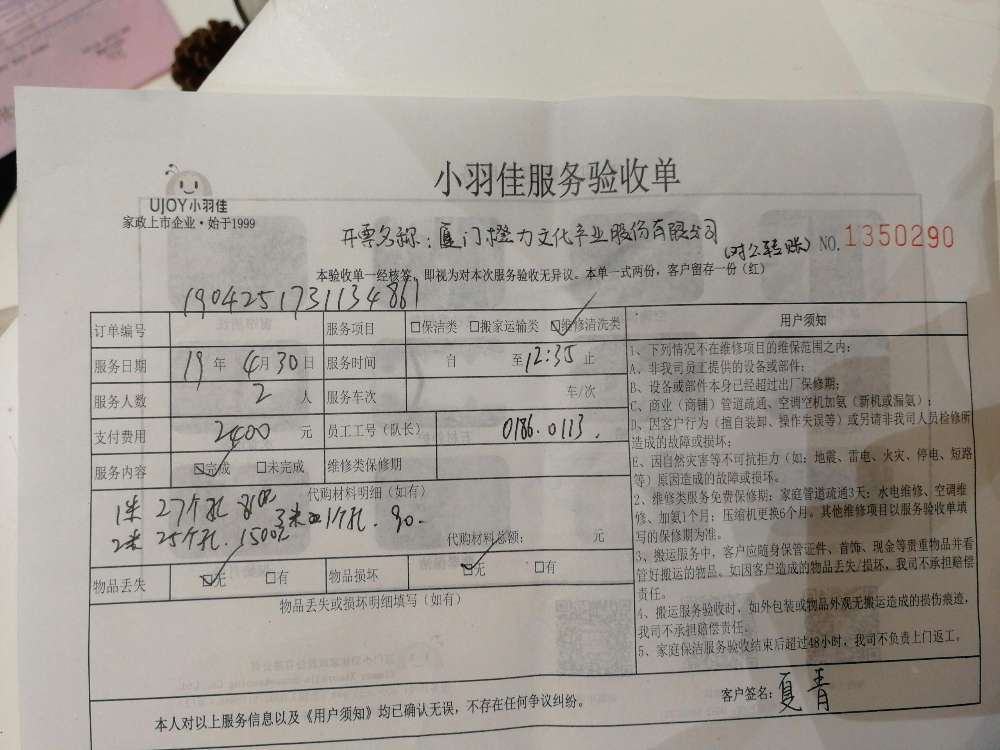 小羽佳服务验收单
UJOY小羽佳
家政上市企业·始于1999
开票名称：厦门橙力文化产业股份有限公司
(对公转账) NO.1350290
本验收单一经核签，即视为对本次服务验收无异议。本单一式两份，客户留存一份（红）
订单编号 1904251731134861 服务项目 □保洁类 □搬家运输类 ☑维修清洗类
服务日期 19 年 4月 30 日 服务时间 自 至 12:35 止
服务人数 2 人 服务车次 车/次
支付费用 2400 元 员工工号（队长） 0186.0113.
服务内容 ☑完成 □未完成 维修类保修期
代购材料明细（如有）
1米 27个孔 810
3米 1个孔. 90.
2米 25个孔. 1500
代购材料总额： 元
物品丢失 ☑无 □有 物品损坏 ☑无 □有
物品丢失或损坏明细填写（如有）
用户须知
1、下列情况不在维修项目的维保范围之内：
A、非我司员工提供的设备或部件；
B、设备或部件本身已经超过出厂保修期；
C、商业（商铺）管道疏通、空调空机加氨（新机或漏氨）；
D、因客户行为（擅自装卸、操作失误等）或另请非我司人员检修所
造成的故障或损坏；
E、因自然灾害等不可抗拒力（如：地震、雷电、火灾、停电、短路
等）原因造成的故障或损坏。
2、维修类服务免费保修期：家庭管道疏通3天；水电维修、空调维
修、加氨1个月；压缩机更换6个月。其他维修项目以服务验收单填
写的保修期为准。
3、搬运服务中，客户应随身保管证件、首饰、现金等贵重物品并看
管好搬运的物品。如因客户造成的物品丢失/损坏，我司不承担赔偿
责任。
4、搬运服务验收时，如外包装或物品外观无搬运造成的损伤痕迹，
我司不承担赔偿责任。
5、家庭保洁服务验收结束后超过48小时，我司不负责上门返工。
本人对以上服务信息以及《用户须知》均已确认无误，不存在任何争议纠纷。
客户签名：夏青